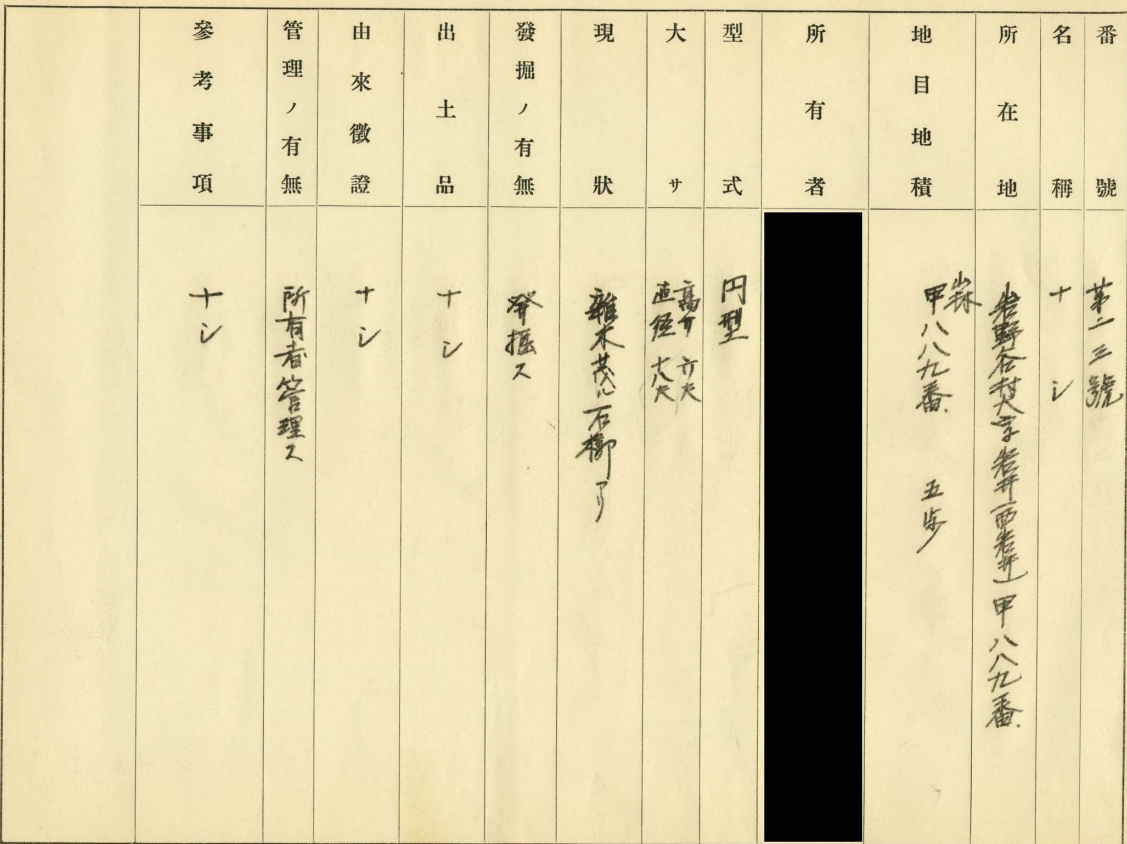 番號
第二三號
名稱
ナシ
所在地
岩野谷村大字岩井(西岩井)甲八八九番
地目地積
山林
甲八八九番 五歩
所有者
型式
円型
大サ
高サ 六尺
直径 十八尺
現狀
雜木茂ル石槨アリ
發掘ノ有無
発掘ス
出土品
ナシ
由來徵證
ナシ
管理ノ有無
所有者管理ス
參考事項
ナシ